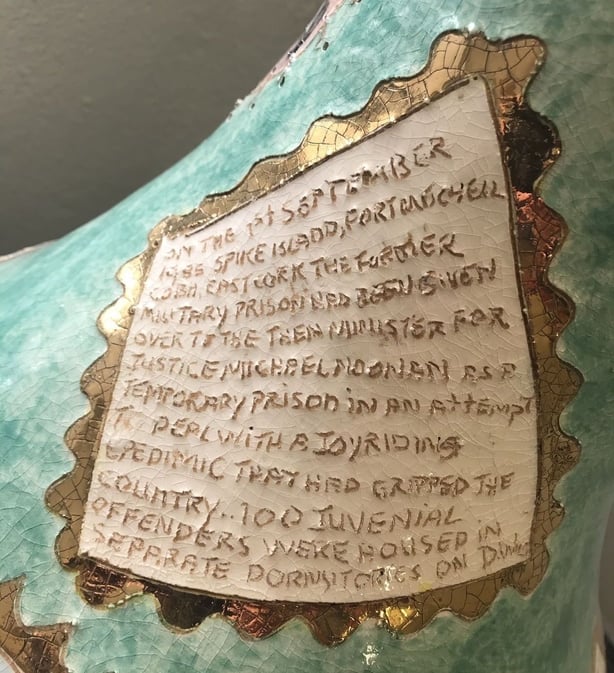 ON THE 1st SEPTEMBER
1985 SPIKE ISLADD, FORT MITCHELL
COBH, EAST CORK THE FORMER
MILITARY PRISON HAD BEEN GIVEN
OVER TO THE THEN MINISTER FOR
JUSTICE MICHAEL NOONAN AS A
TEMPORARY PRISON IN AN ATTEMPT
TO DEAL WITH A JOYRIDING
EPEDIMIC THAT HAD GRIPPED THE
COUNTRY.. 100 JUVENIAL
OFFENDERS WERE HOUSED IN
SEPPRATE DORMSITORIES ON